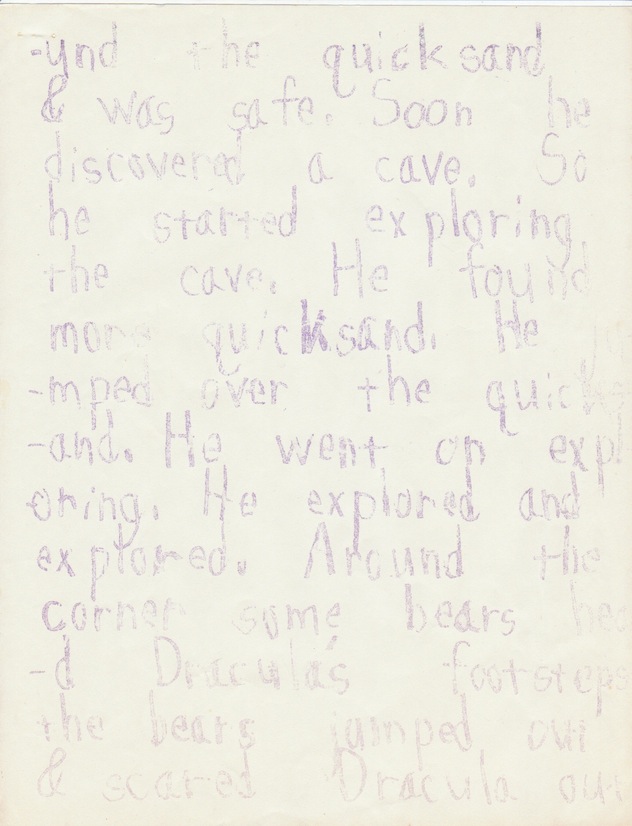 -ynd the quicksand
& was safe. Soon he
discovered a cave. So
he started exploring
the cave. He found
more quicksand. He ju
-mped over the quicks
-and. He went on expl
oring. He explored and
explored. Around the
corner some bears hea
-d Dracula's footsteps
the bears jumped out
& scared Dracula out